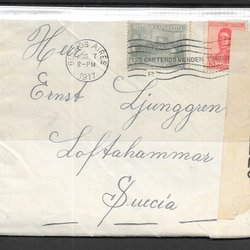 Bs AIRES
2-PM.
1917
LOS CARTEROS VENDEN
Herr
Ernst Ljunggren
Loftahammar
Suecia